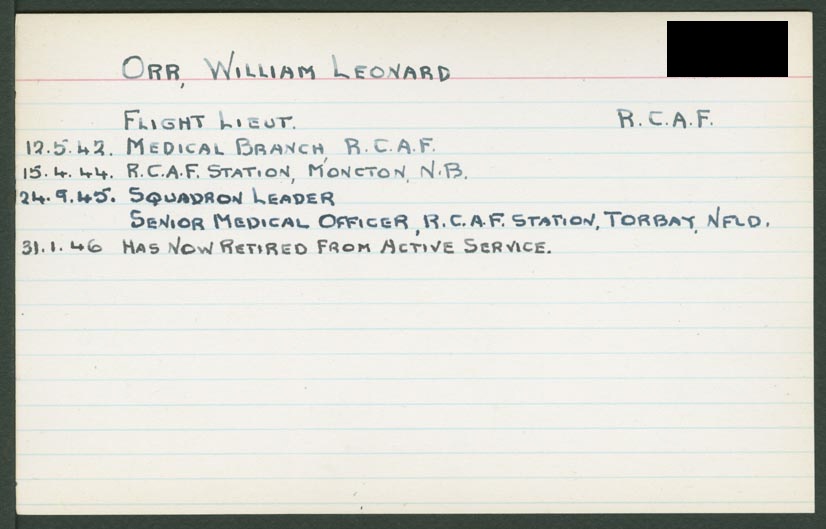 ORR, WILLIAM LEONARD
FLIGHT LIEUT. R.C.A.F.
12.5.42. MEDICAL BRANCH, R.C.A.F.
15.4.44. R.C.A.F. STATION, MONCTON, N.B.
24.9.45. SQUADRON LEADER
SENIOR MEDICAL OFFICER, R.C.A.F. STATION, TORBAY, NFLD.
31.1.46 HAS NOW RETIRED FROM ACTIVE SERVICE.